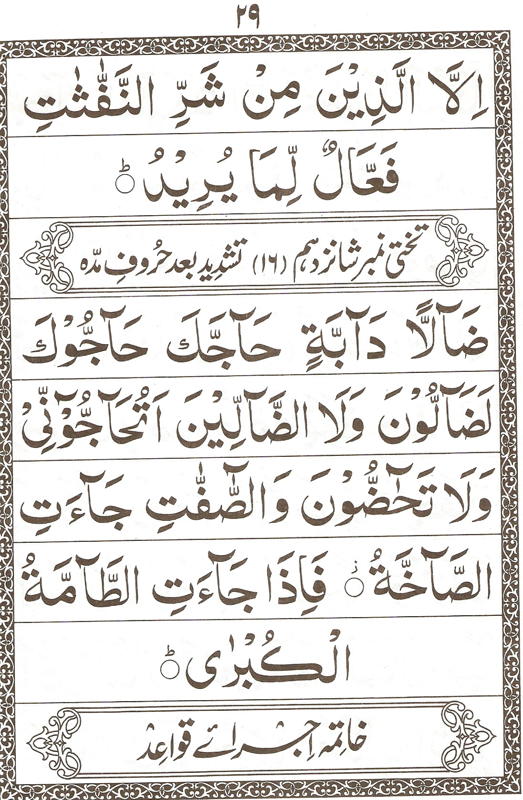 ٢٩
اِلَّا الَّذِيْنَ مِنْ شَرِّ النَّفّٰثٰتِ
فَعَّالٌ لِّمَا يُرِيْدُ ؕ
تختی نمبر شانزدہم (١٦) تشدید بعد حُروفِ مدّہ
ضَآلًّا دَآبَّةٍ حَآجَّكَ حَآجُّوْكَ
لَضَآلُّوْنَ وَلَا الضَّآلِّيْنَ اَتُحَآجُّوْٓنِّيْ
وَلَا تَحٰٓضُّوْنَ وَالصّٰٓفّٰتِ جَآءَتِ
الصَّآخَّةُ ؗ فَاِذَا جَآءَتِ الطَّآمَّةُ
الْكُبْرٰى ؕ
خاتمہ اجرائے قواعد